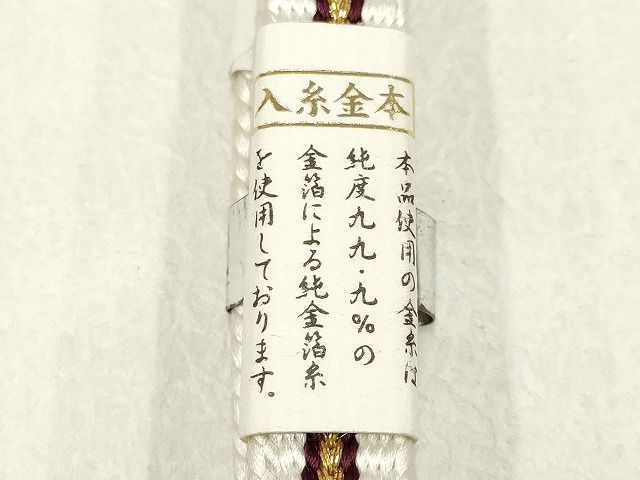 本金糸入
本品使用の金糸は
純度九九・九%の
金箔による純金箔糸
を使用しております。